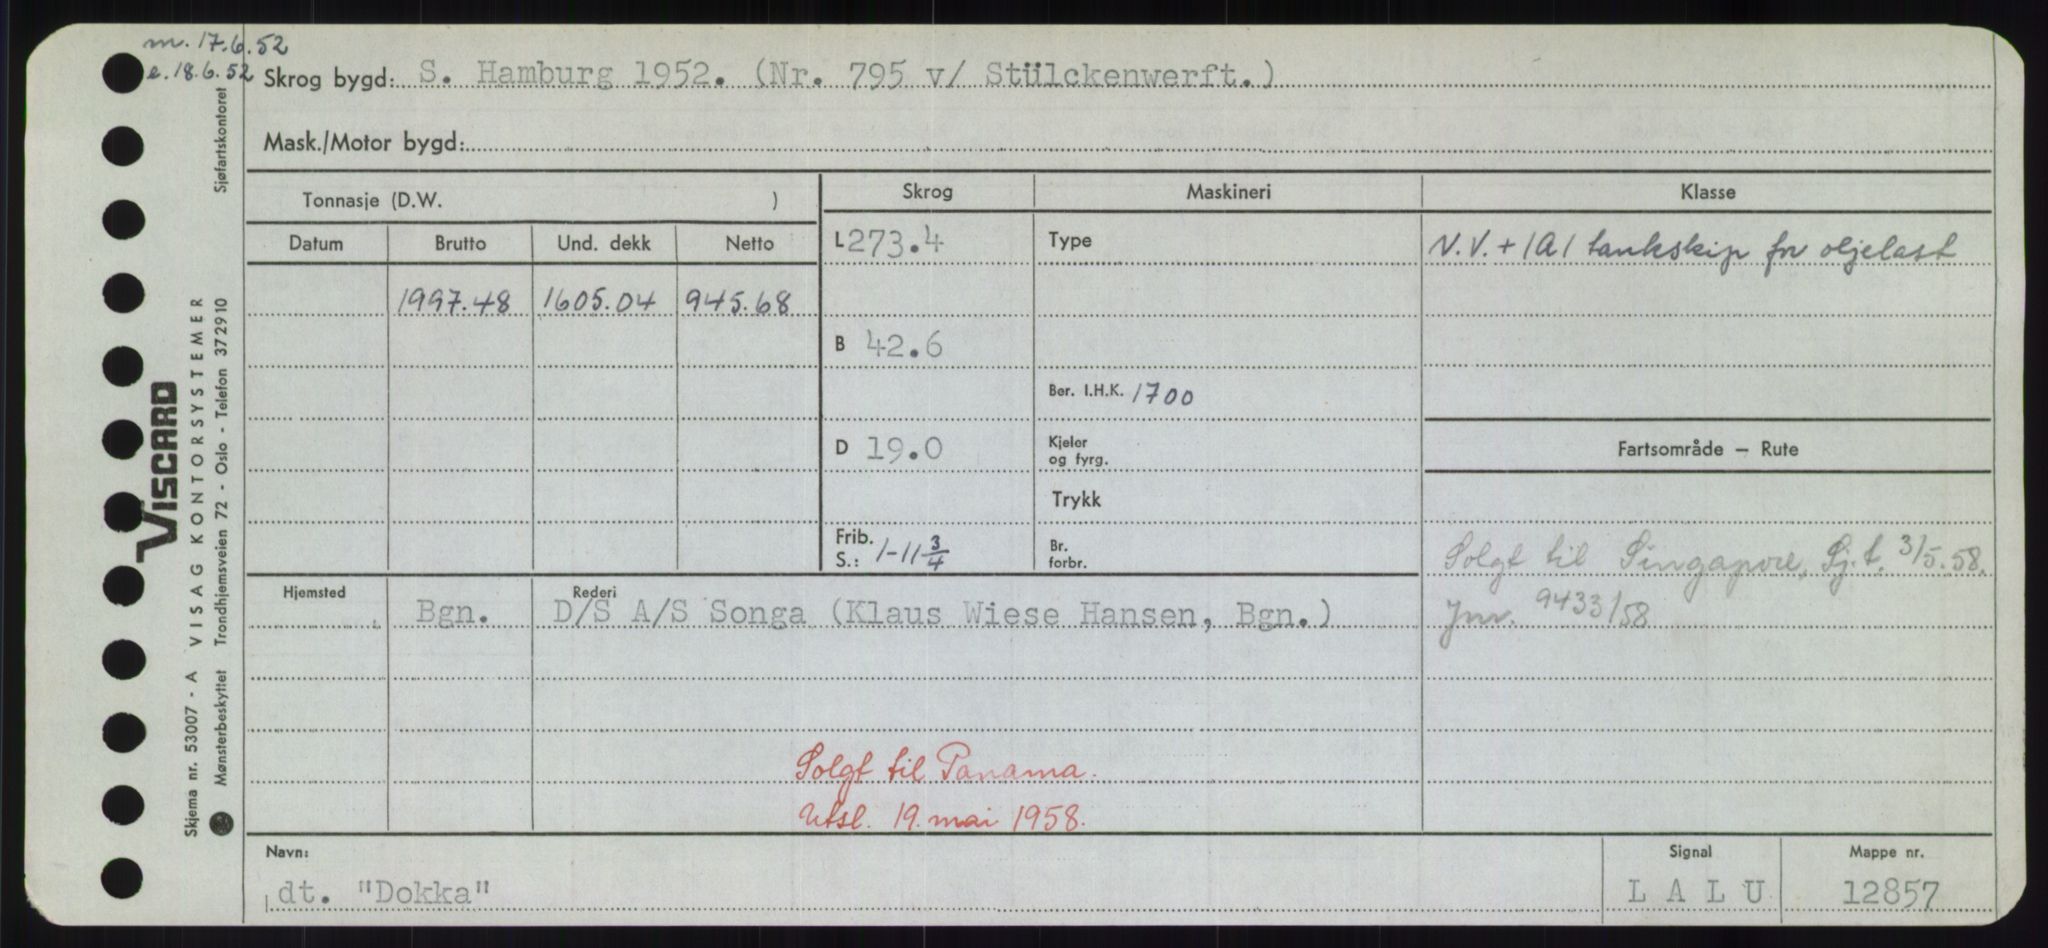 m. 17.6.52
e. 18.6.52
Skrog bygd: S. Hamburg 1952. (Nr. 795 v/ Stülckenwerft.)
Mask./Motor bygd:
Tonnasje (D.W. )
Skrog
Maskineri
Klasse
Datum
Brutto
Und. dekk
Netto
L 273.4
Type
N.V. + 1A1 tankskip for oljelast
1997.48
1605.04
945.68
B 42.6
Ber. I.H.K. 1700
D 19.0
Kjeler
og fyrg.
Fartsområde – Rute
Trykk
Frib.
S.: 1-11 3/4
Br.
forbr.
Solgt til Singapore, Sj.t. 3/5.58.
Jnr. 9433/58
Hjemsted
Rederi
Bgn.
D/S A/S Songa (Klaus Wiese Hansen, Bgn.)
Solgt til Panama.
Utsl. 19. mai 1958.
Navn:
dt. "Dokka"
Signal
L A L U
Mappe nr.
12857
VISCARD
Skjema nr. 53007 - A VISAG KONTORSYSTEMER
Mønsterbeskyttet Trondhjemsveien 72 - Oslo - Telefon 372910 Sjøfartskontoret